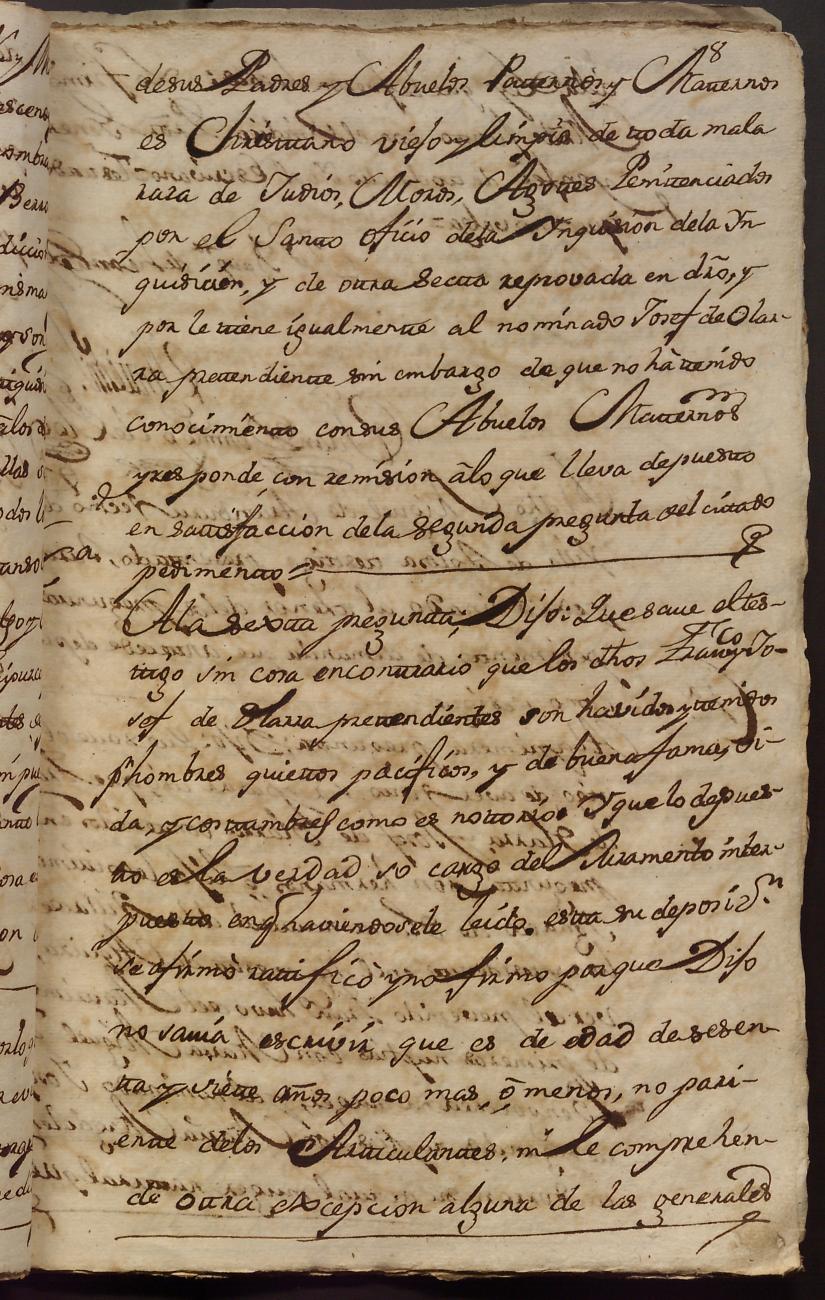 8
desus Padres y Abuelos Paternos y Maternos
es Christiano viejo y limpio de toda mala
raza de Judios, Moros, Agotes Penitenciados
por el Santo oficio dela Ynquisión dela Yn-
quisición, y de otra secta reprovada en dro, y
por le tiene igualmente al nominado Josef de Olar-
ra pretendiente sin embargo de que no hà tenido
conocimiento consus Abuelos Maternos
y responde con remisión àlo que lleva depuesto
en satisfacción dela segunda pregunta del citado
pedimento =
Ala sexta pregunta; Dijo: Que save el tes-
tigo sin cosa encontrario que los dhos Franco y Jo-
sef de Olarra pretendientes son havidos y tenidos
pr hombres quietos pacificos, y de buena fama, vi-
da, y costumbres como es notorio. Y que lo depues-
to es la verdad so cargo del Juramento inter-
puesto en q haviendosele leido esta su deposiÓn
se afirmò ratificò y no firmo porque Dijo
no savia escrivir que es de edad de sesen-
ta y siete años poco mas, ò menos, no pari-
ente delos Articulantes, ni le comprehen-
de otra excepcion alguna de las generales